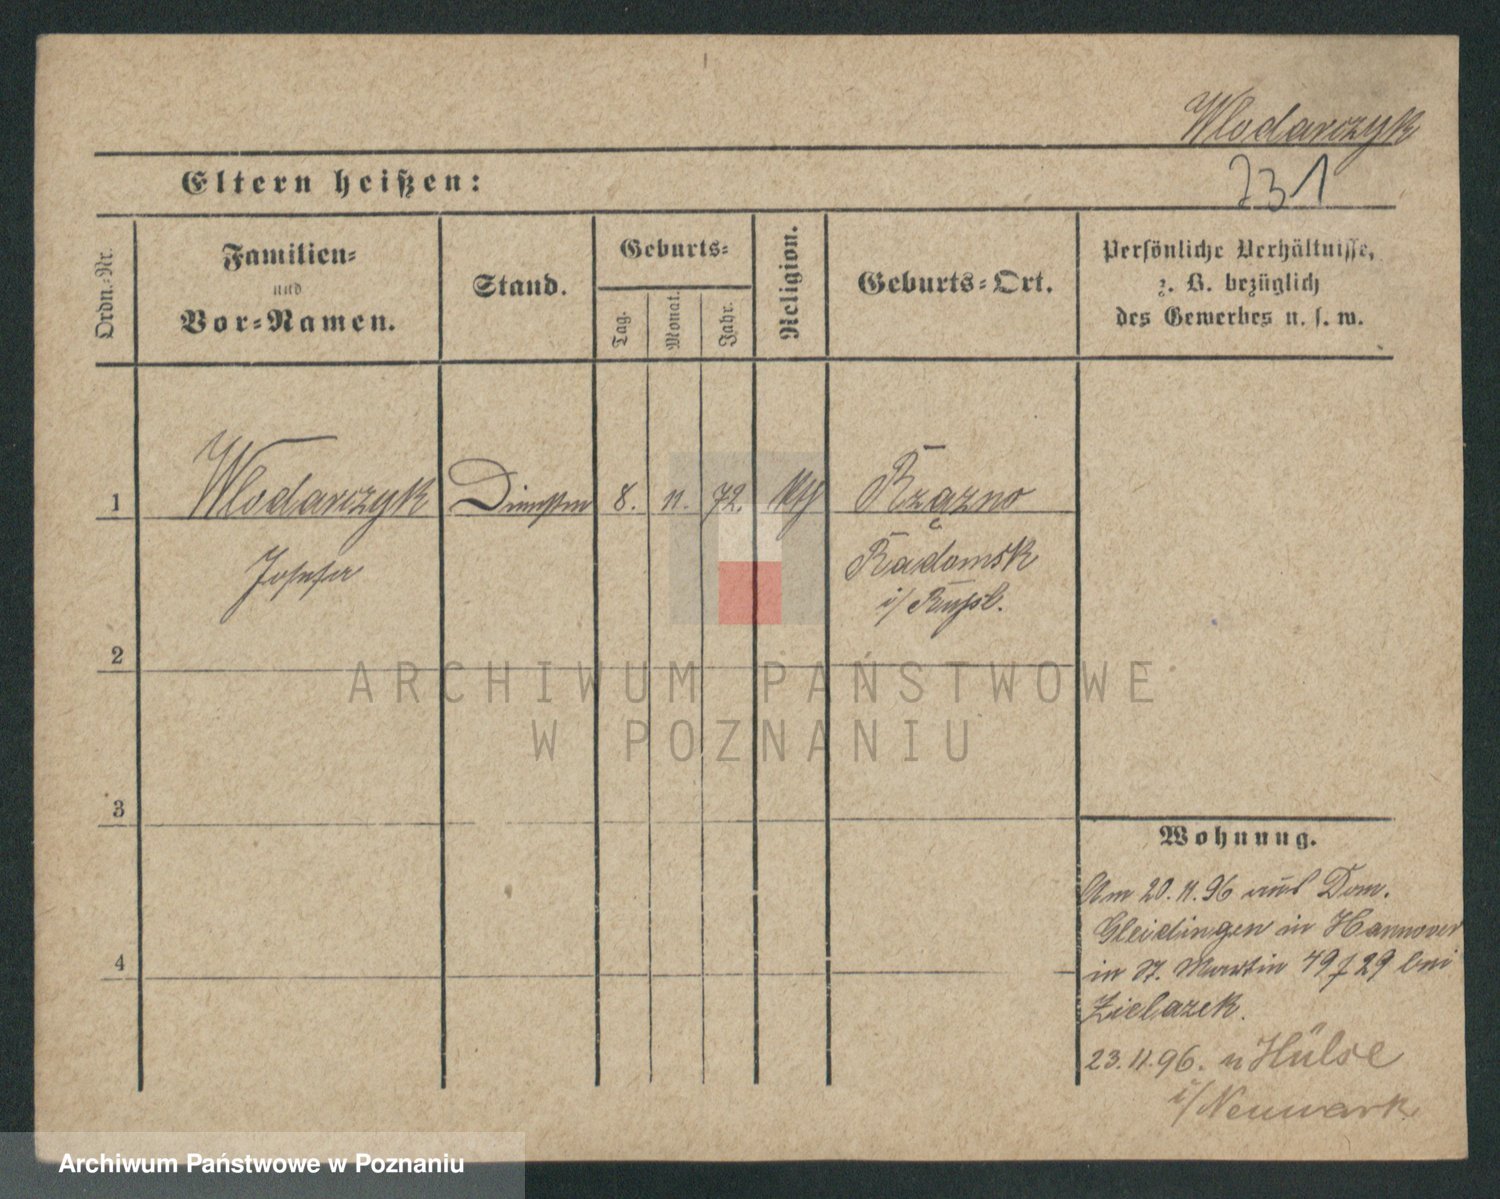 Wlodarczyk
231
Eltern heißen:
Ordn.-Nr.
Familien-
und
Vor-Namen.
Stand.
Geburts-
Tag.
Monat.
Jahr.
Religion.
Geburts-Ort.
Persönliche Verhältnisse,
z. B. bezüglich
des Gewerbes u. s. w.
1 Wlodarczyk 8. 11. 72. kth Rzązno
Josefa Radomsk
i/ Rußl.
2
3
4
Wohnung.
Am 20.11.96 aus Dom.
Gleidingen in Hannover
in St. Martin 49 29 bei
Zielazek.
23.11.96. n Hülse
i/ Neumark.
ARCHIWUM PAŃSTWOWE
W POZNANIU
Archiwum Państwowe w Poznaniu